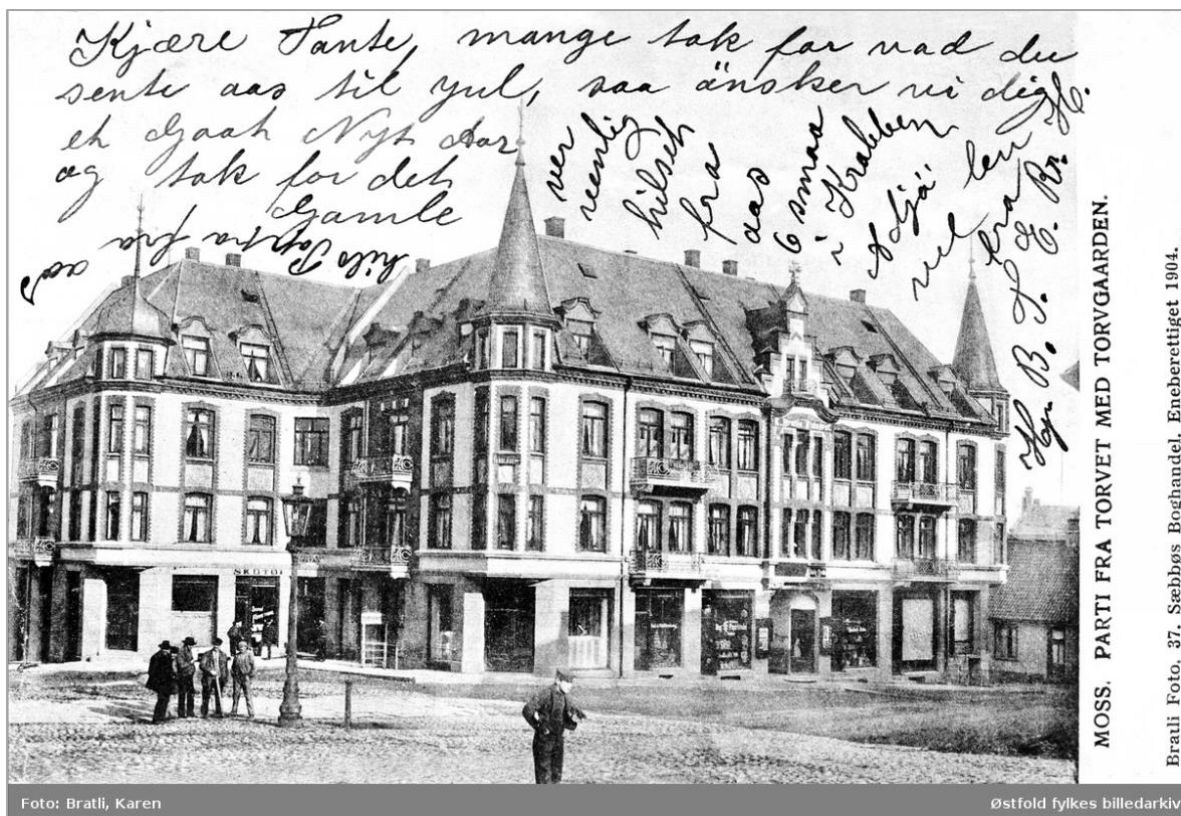 Kjære Tante, mange tak for vad du
sente aas til yul, saa änsker vi dig
et Gaat Nyt Aar
og tak for det
Gamle
hils Pappa fra
aas
ver
venlig
hilset
fra
aas
6 smaa
i Krabben
Adjä
vel
fra
Hg. B. T. & E. Br. H.
MOSS. PARTI FRA TORVET MED TORVGAARDEN.
Bratli Foto. 37. Sæbbøs Boghandel. Eneberettiget 1904.
SKOTØI
Foto: Bratli, Karen
Østfold fylkes billedarkiv